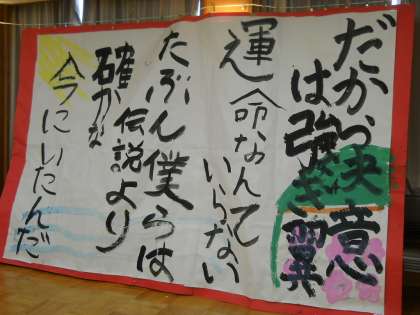 だから決意
は強き翼
運命なんて
いらない
たぶん僕らは
伝説より
確かな
今にいたんだ